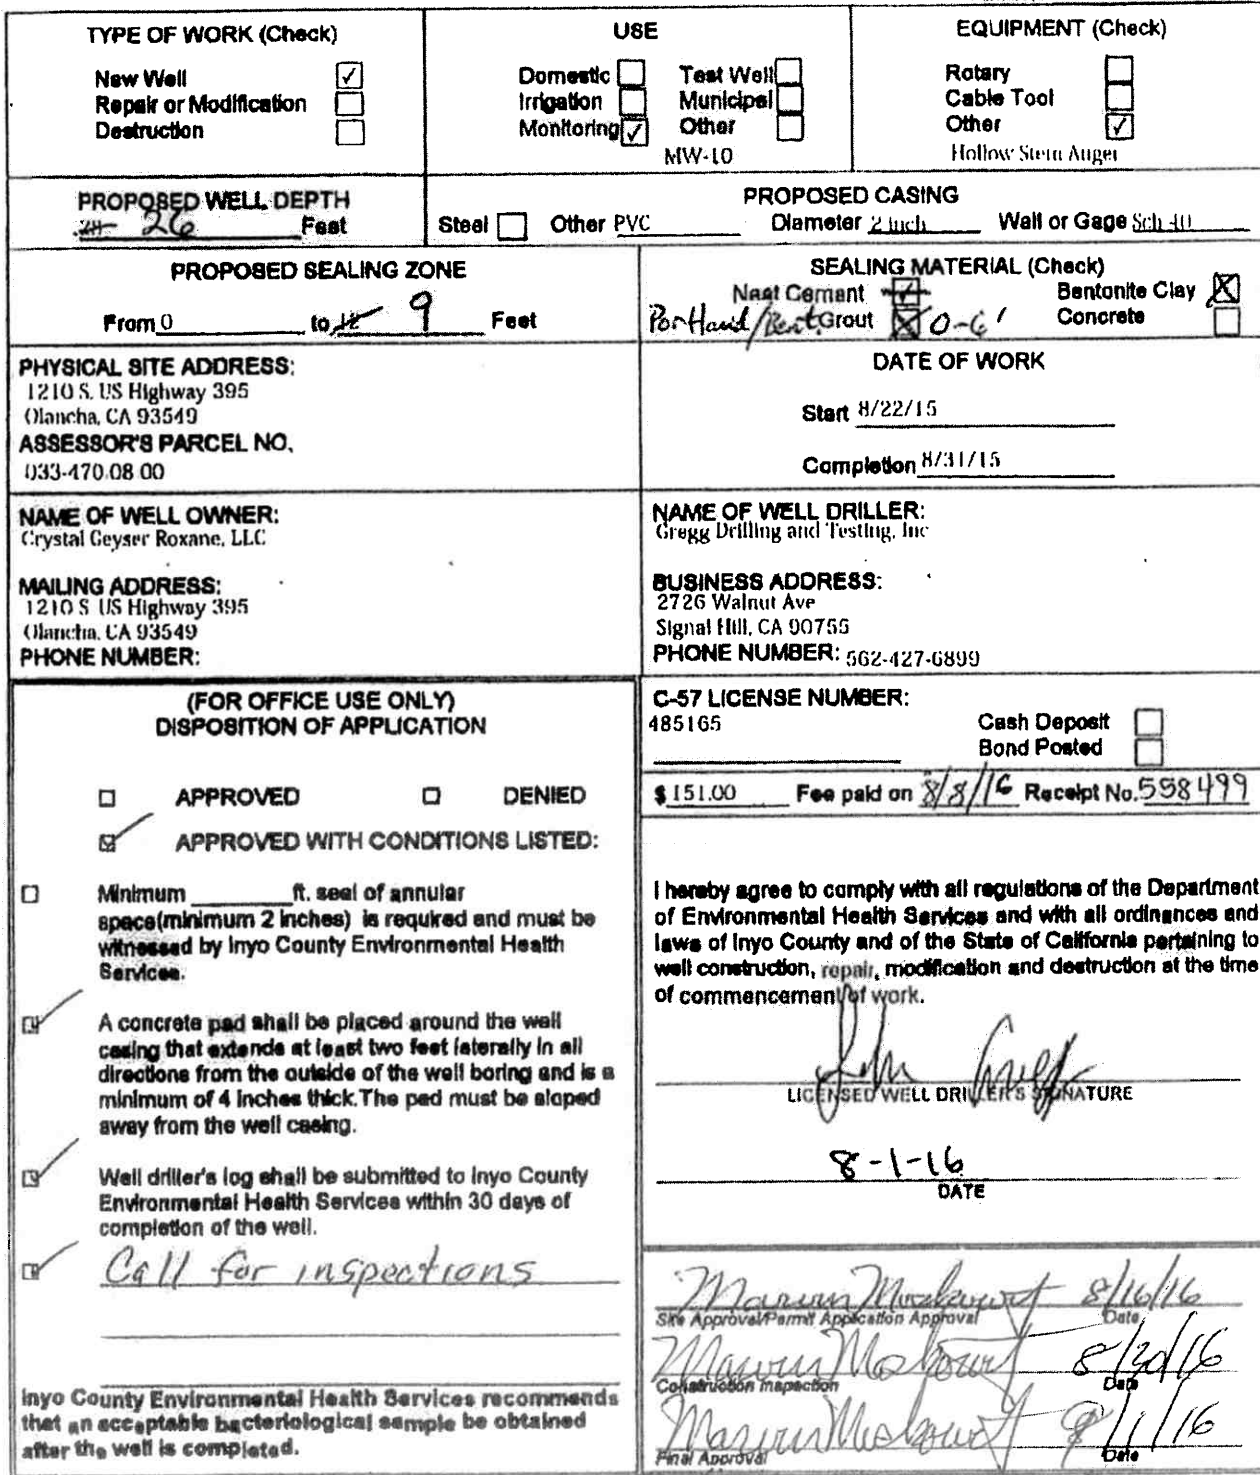 TYPE OF WORK (Check)
New Well ✓
Repair or Modification
Destruction
USE
Domestic Test Well
Irrigation Municipal
Monitoring ✓ Other
MW-10
EQUIPMENT (Check)
Rotary
Cable Tool
Other ✓
Hollow Stem Auger
PROPOSED WELL DEPTH
26 Feet
PROPOSED CASING
Steel Other PVC Diameter 2 inch Wall or Gage Sch 40
PROPOSED SEALING ZONE
From 0 to 12 9 Feet
SEALING MATERIAL (Check)
Neat Cement Bentonite Clay
Portland/Bent. Grout 0-6' Concrete
PHYSICAL SITE ADDRESS:
1210 S. US Highway 395
Olancha, CA 93549
ASSESSOR'S PARCEL NO.
033-470-08-00
DATE OF WORK
Start 8/22/15
Completion 8/31/15
NAME OF WELL OWNER:
Crystal Geyser Roxane, LLC
MAILING ADDRESS:
1210 S US Highway 395
Olancha, CA 93549
PHONE NUMBER:
NAME OF WELL DRILLER:
Gregg Drilling and Testing, Inc
BUSINESS ADDRESS:
2726 Walnut Ave
Signal Hill, CA 90755
PHONE NUMBER: 562-427-6899
(FOR OFFICE USE ONLY)
DISPOSITION OF APPLICATION
APPROVED DENIED
APPROVED WITH CONDITIONS LISTED:
Minimum ________ft. seal of annular
space(minimum 2 inches) is required and must be
witnessed by Inyo County Environmental Health
Services.
A concrete pad shall be placed around the well
casing that extends at least two feet laterally in all
directions from the outside of the well boring and is a
minimum of 4 inches thick. The pad must be sloped
away from the well casing.
Well driller's log shall be submitted to Inyo County
Environmental Health Services within 30 days of
completion of the well.
Call for inspections
Inyo County Environmental Health Services recommends
that an acceptable bacteriological sample be obtained
after the well is completed.
C-57 LICENSE NUMBER:
485165
Cash Deposit
Bond Posted
$ 151.00 Fee paid on 8/8/16 Receipt No. 558499
I hereby agree to comply with all regulations of the Department
of Environmental Health Services and with all ordinances and
laws of Inyo County and of the State of California pertaining to
well construction, repair, modification and destruction at the time
of commencement of work.
LICENSED WELL DRILLER'S SIGNATURE
8-1-16
DATE
8/16/16
Site Approval/Permit Application Approval Date
8/30/16
Construction Inspection Date
9/1/16
Final Approval Date